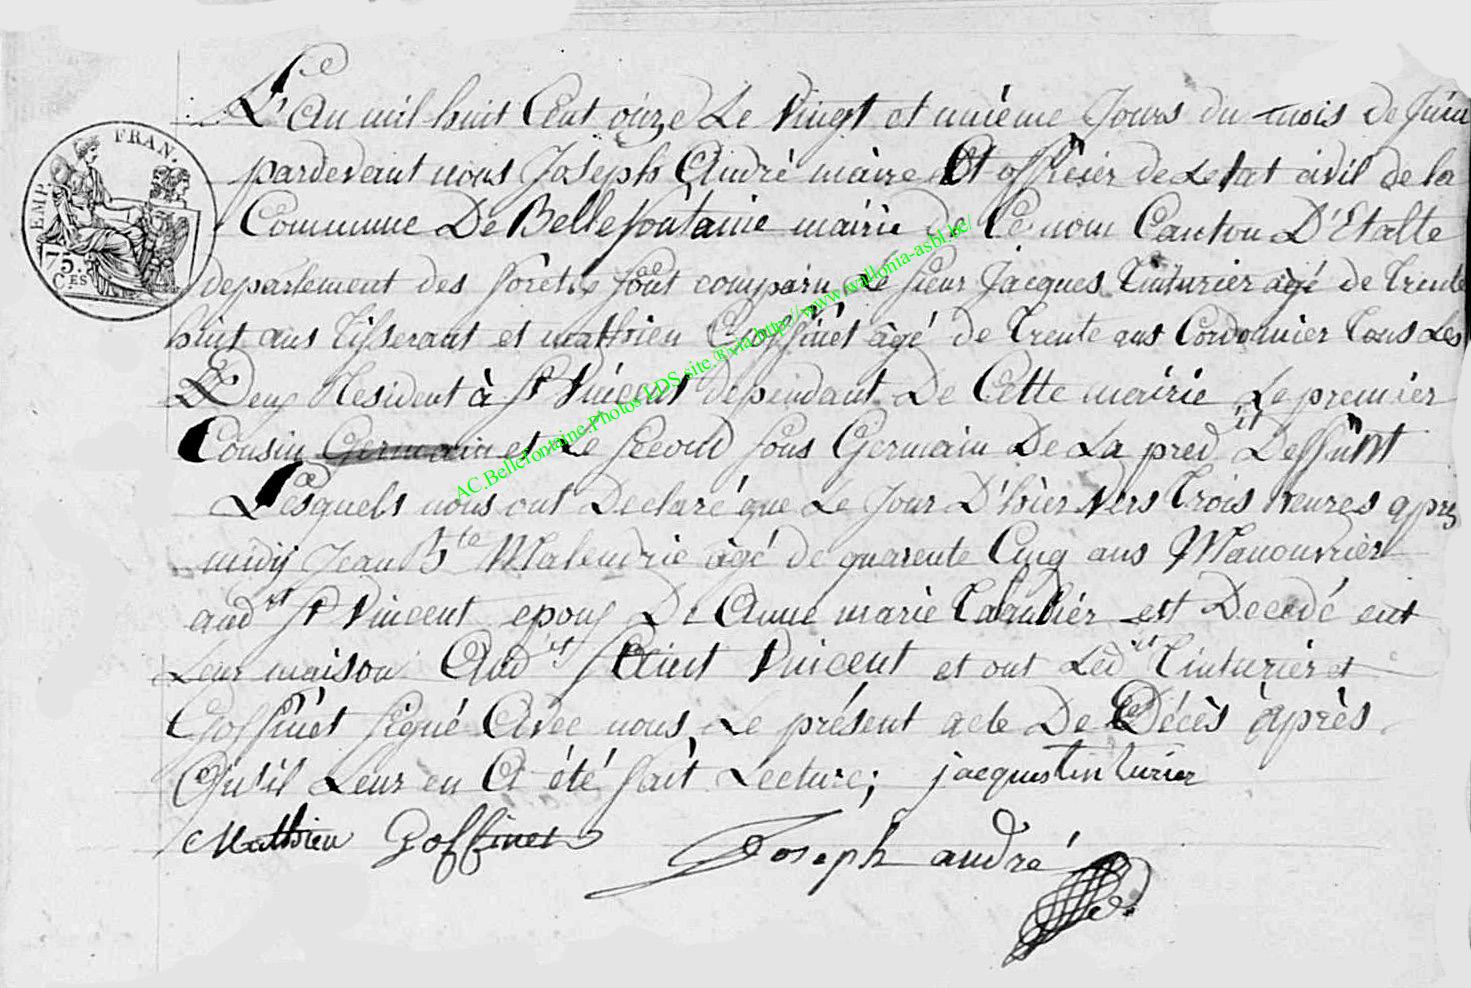 L'An mil huit Cent onze Le Vingt et unième Jours du mois de Juin
pardevant nous Joseph André màire Et officier de Letat civil de la
Commune De Bellefontaine mairie de Ce nom Canton D'Etalle
departement des forets font comparu Le sieur Jacques Tinturier agé de Trente
huit ans Tisserant et mathieu Goffinet âgé de Trente ans Cordonnier Tous Les
Deux Resident à St Vincent dependant De Cette mairie Le premier
Cousin Germain et Le second sous Germain De La pred it Deffunt
Lesquels nous ont Declaré que Le Jour D'hièr Vers Trois heures apres
midy Jean Bte Malendrie agé de quarente Cinq ans Manouvrièr
aud it St Vincent epoux De Anne marie est Decedé ent
Leur maison Aud it Saint Vincent et ont Led it Tinturièr et
Goffinet signé Avec nous Le présent acte De Décès après
Qu'il Leur en A été fait Lecture; jacques tinturier
Mathieu Goffinet Joseph andré
EMP. FRAN.
75. CES
AC.Bellefontaine.Photos LDS.site.fr.via.http://www.wallonia-asbl.be/